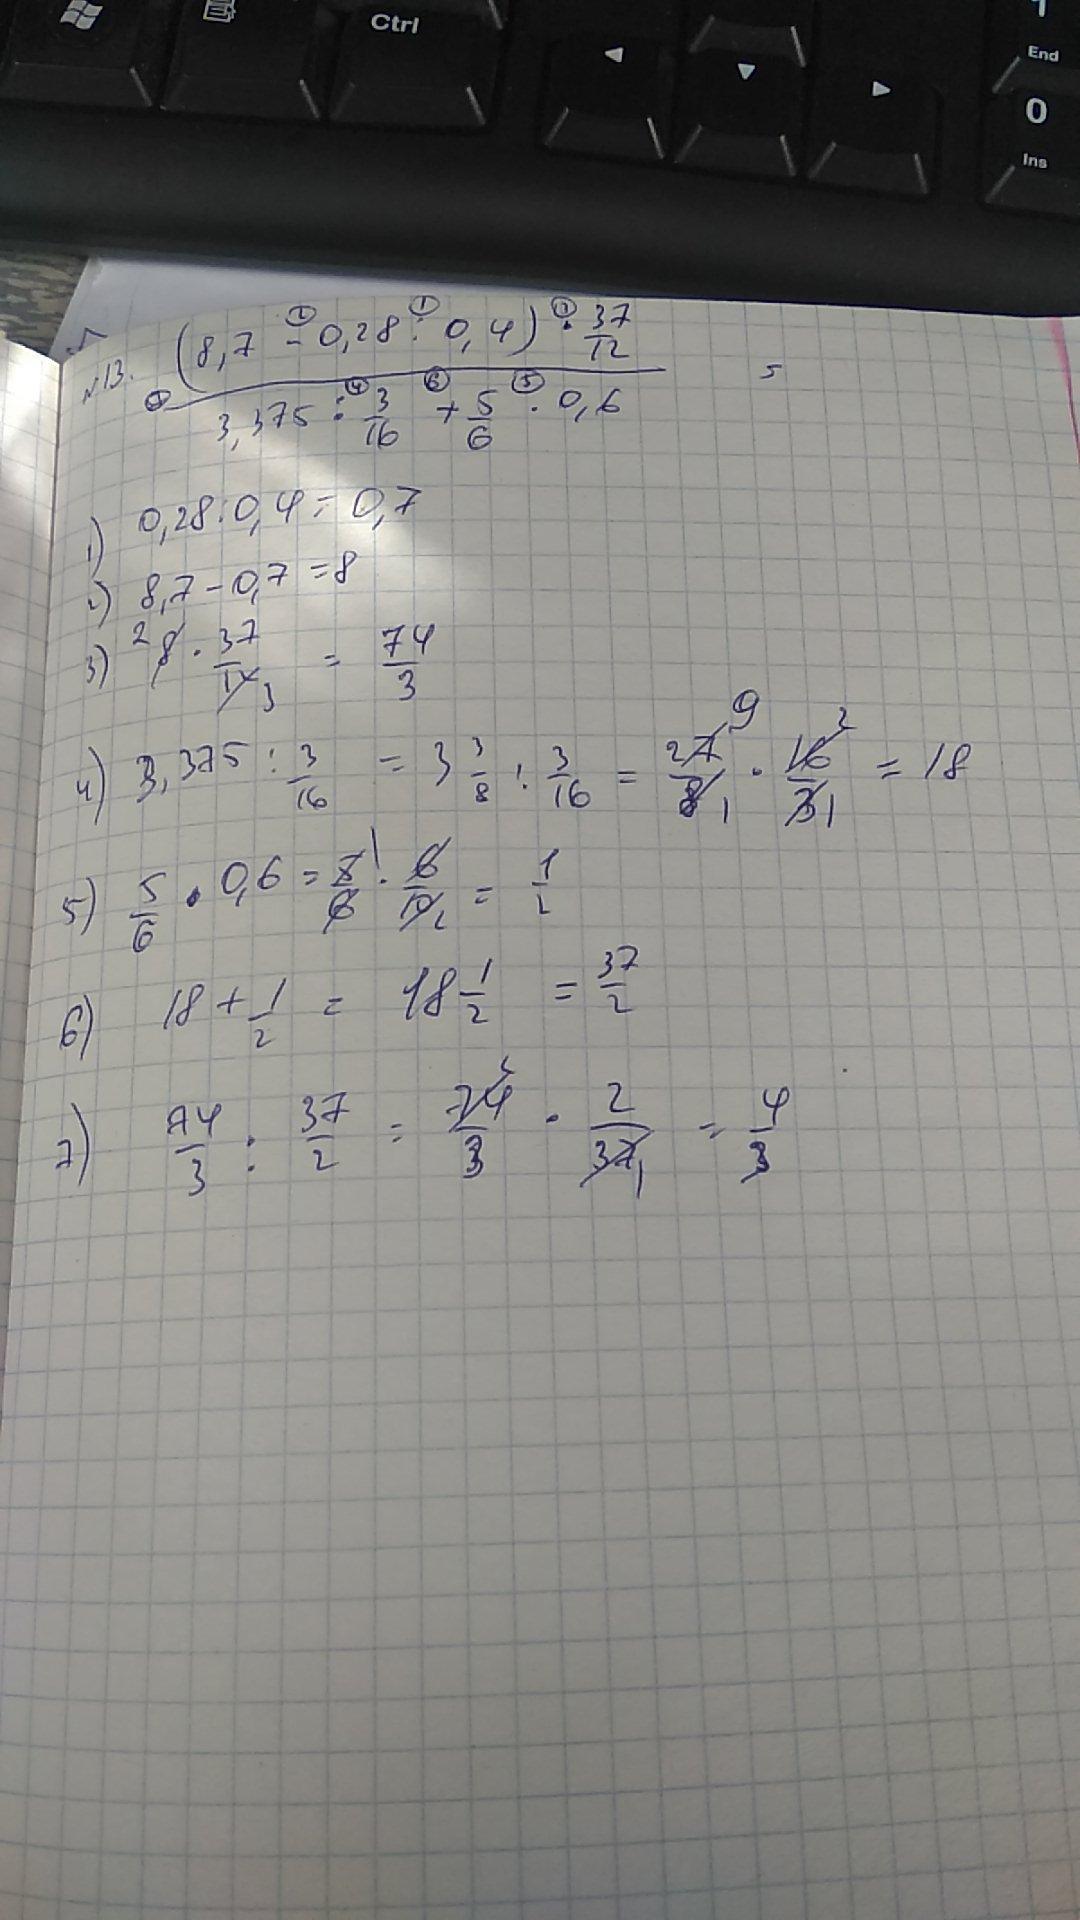 Ctrl
1
End
0
Ins
№13. (8,7 - 0,28 : 0,4) · 37/12 =
3,375 : 3/16 + 5/6 · 0,6
1) 0,28 : 0,4 = 0,7
2) 8,7 - 0,7 = 8
3) 8 · 37/12 = 74/3
4) 3,375 : 3/16 = 3 3/8 : 3/16 = 27/8 · 16/3 = 18
5) 5/6 · 0,6 = 5/6 · 6/10 = 1/2
6) 18 + 1/2 = 18 1/2 = 37/2
7) 74/3 : 37/2 = 74/3 · 2/37 = 4/3